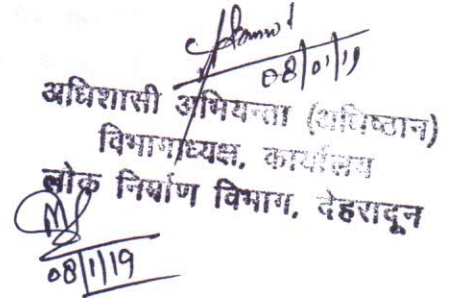 08/01/19
अधिशासी अभियन्ता (अधिष्ठान)
विभागाध्यक्ष, कार्यालय
लोक निर्माण विभाग, देहरादून
08/1/19